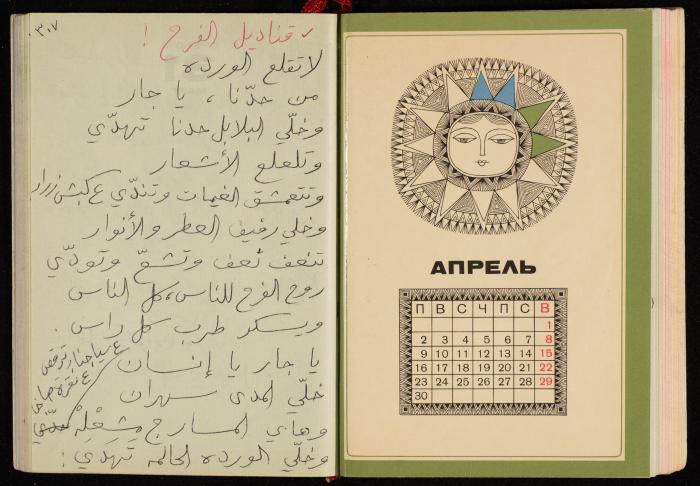 ٣٠٧
قناديل الفرح !
لا تقلع الورده
من حدّنا ، يا جار
وخلّي البلابل حدنا تهدّي
وتلعلع الأشعار
وتتعمشق الغيمات وتندّي ع كبش زرار
وخلي رفيف العطر والأنوار
تنعف نعف وتشعّ وتودّي
روح الفرح للناس، كل الناس
ويسكر طرب كل راس .
يا جار يا إنسان
خلّي المدى سهران
وهاي المسارج مِشعْلِه
وخلّي الورده الحالمه تهدّي :
АПРЕЛЬ
П В С Ч П С В
1
2 3 4 5 6 7 8
9 10 11 12 13 14 15
16 17 18 19 20 21 22
23 24 25 26 27 28 29
30